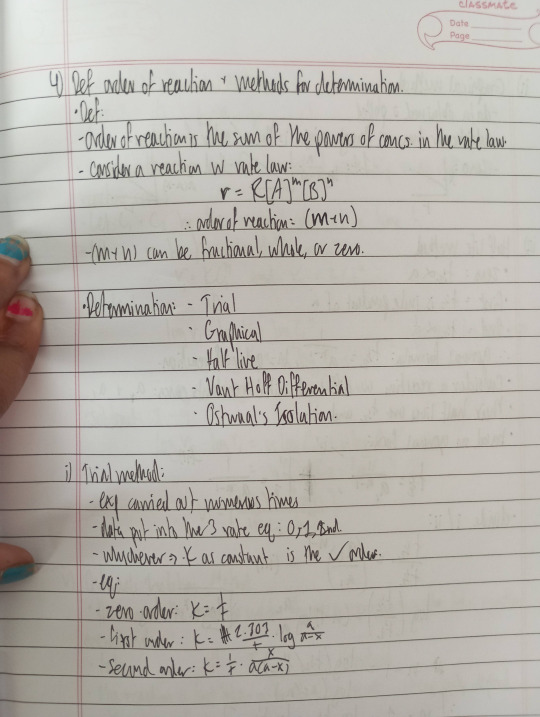 CLASSMATE
Date
Page
4) Def order of reaction + methods for determination.
• Def:
- order of reaction is the sum of the powers of concs. in the rate law.
- consider a reaction w rate law:
r = K[A]^m[B]^n
∴ order of reaction = (m+n)
- (m+n) can be fractional, whole, or zero.
• Determination: - Trial
- Graphical
- Half live
- Vant Hoff Differential
- Ostwual's Isolation.
i) Trial method:
- exp carried out numerous times
- data put into the 3 rate eq: 0, 1, 2nd.
- whichever → K as constant is the ✓ order.
- eq:
- zero order: K = x/t
- first order: K = 2.303/t · log a/a-x
- second order: K = 1/t · x/a(a-x)